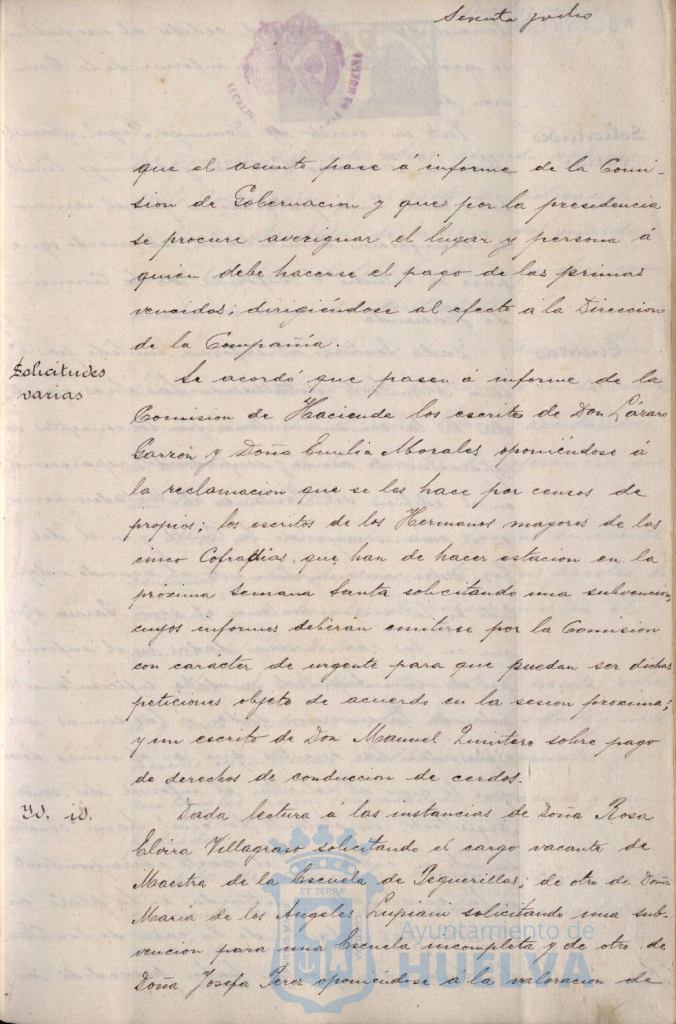 Sesenta y ocho
que el asunto pase á informe de la Comi-
sion de Gobernacion y que por la presidencia
se procure averiguar el lugar y persona á
quien debe hacerse el pago de las primas
vencidas; dirigiéndose al efecto á la Direccion
de la Compañía.
Solicitudes
varias
Se acordó que pasen á informe de la
Comision de Hacienda los escritos de Don Lázaro
Garzon y Doña Emilia Morales oponiéndose á
la reclamacion que se les hace por censos de
propios; los escritos de los Hermanos mayores de las
cinco Cofradias que han de hacer estacion en la
próxima Semana Santa solicitando una subvencion,
cuyos informes deberán emitirse por la Comision
con carácter de urgente para que puedan ser dichas
peticiones objeto de acuerdo en la sesion proxima;
y un escrito de Don Manuel Quintero sobre pago
de derechos de conduccion de cerdos.
Yd. id.
Dada lectura á las instancias de Doña Rosa
Elvira Villagraso solicitando el cargo vacante de
Maestra de la Escuela de Peguerillas; de otro de Doña
María de los Angeles Lupiani solicitando una sub-
vencion para una Escuela incompleta y de otro de
Doña Josefa Perez oponiéndose á la valoracion de
Ayuntamiento de
HUELVA